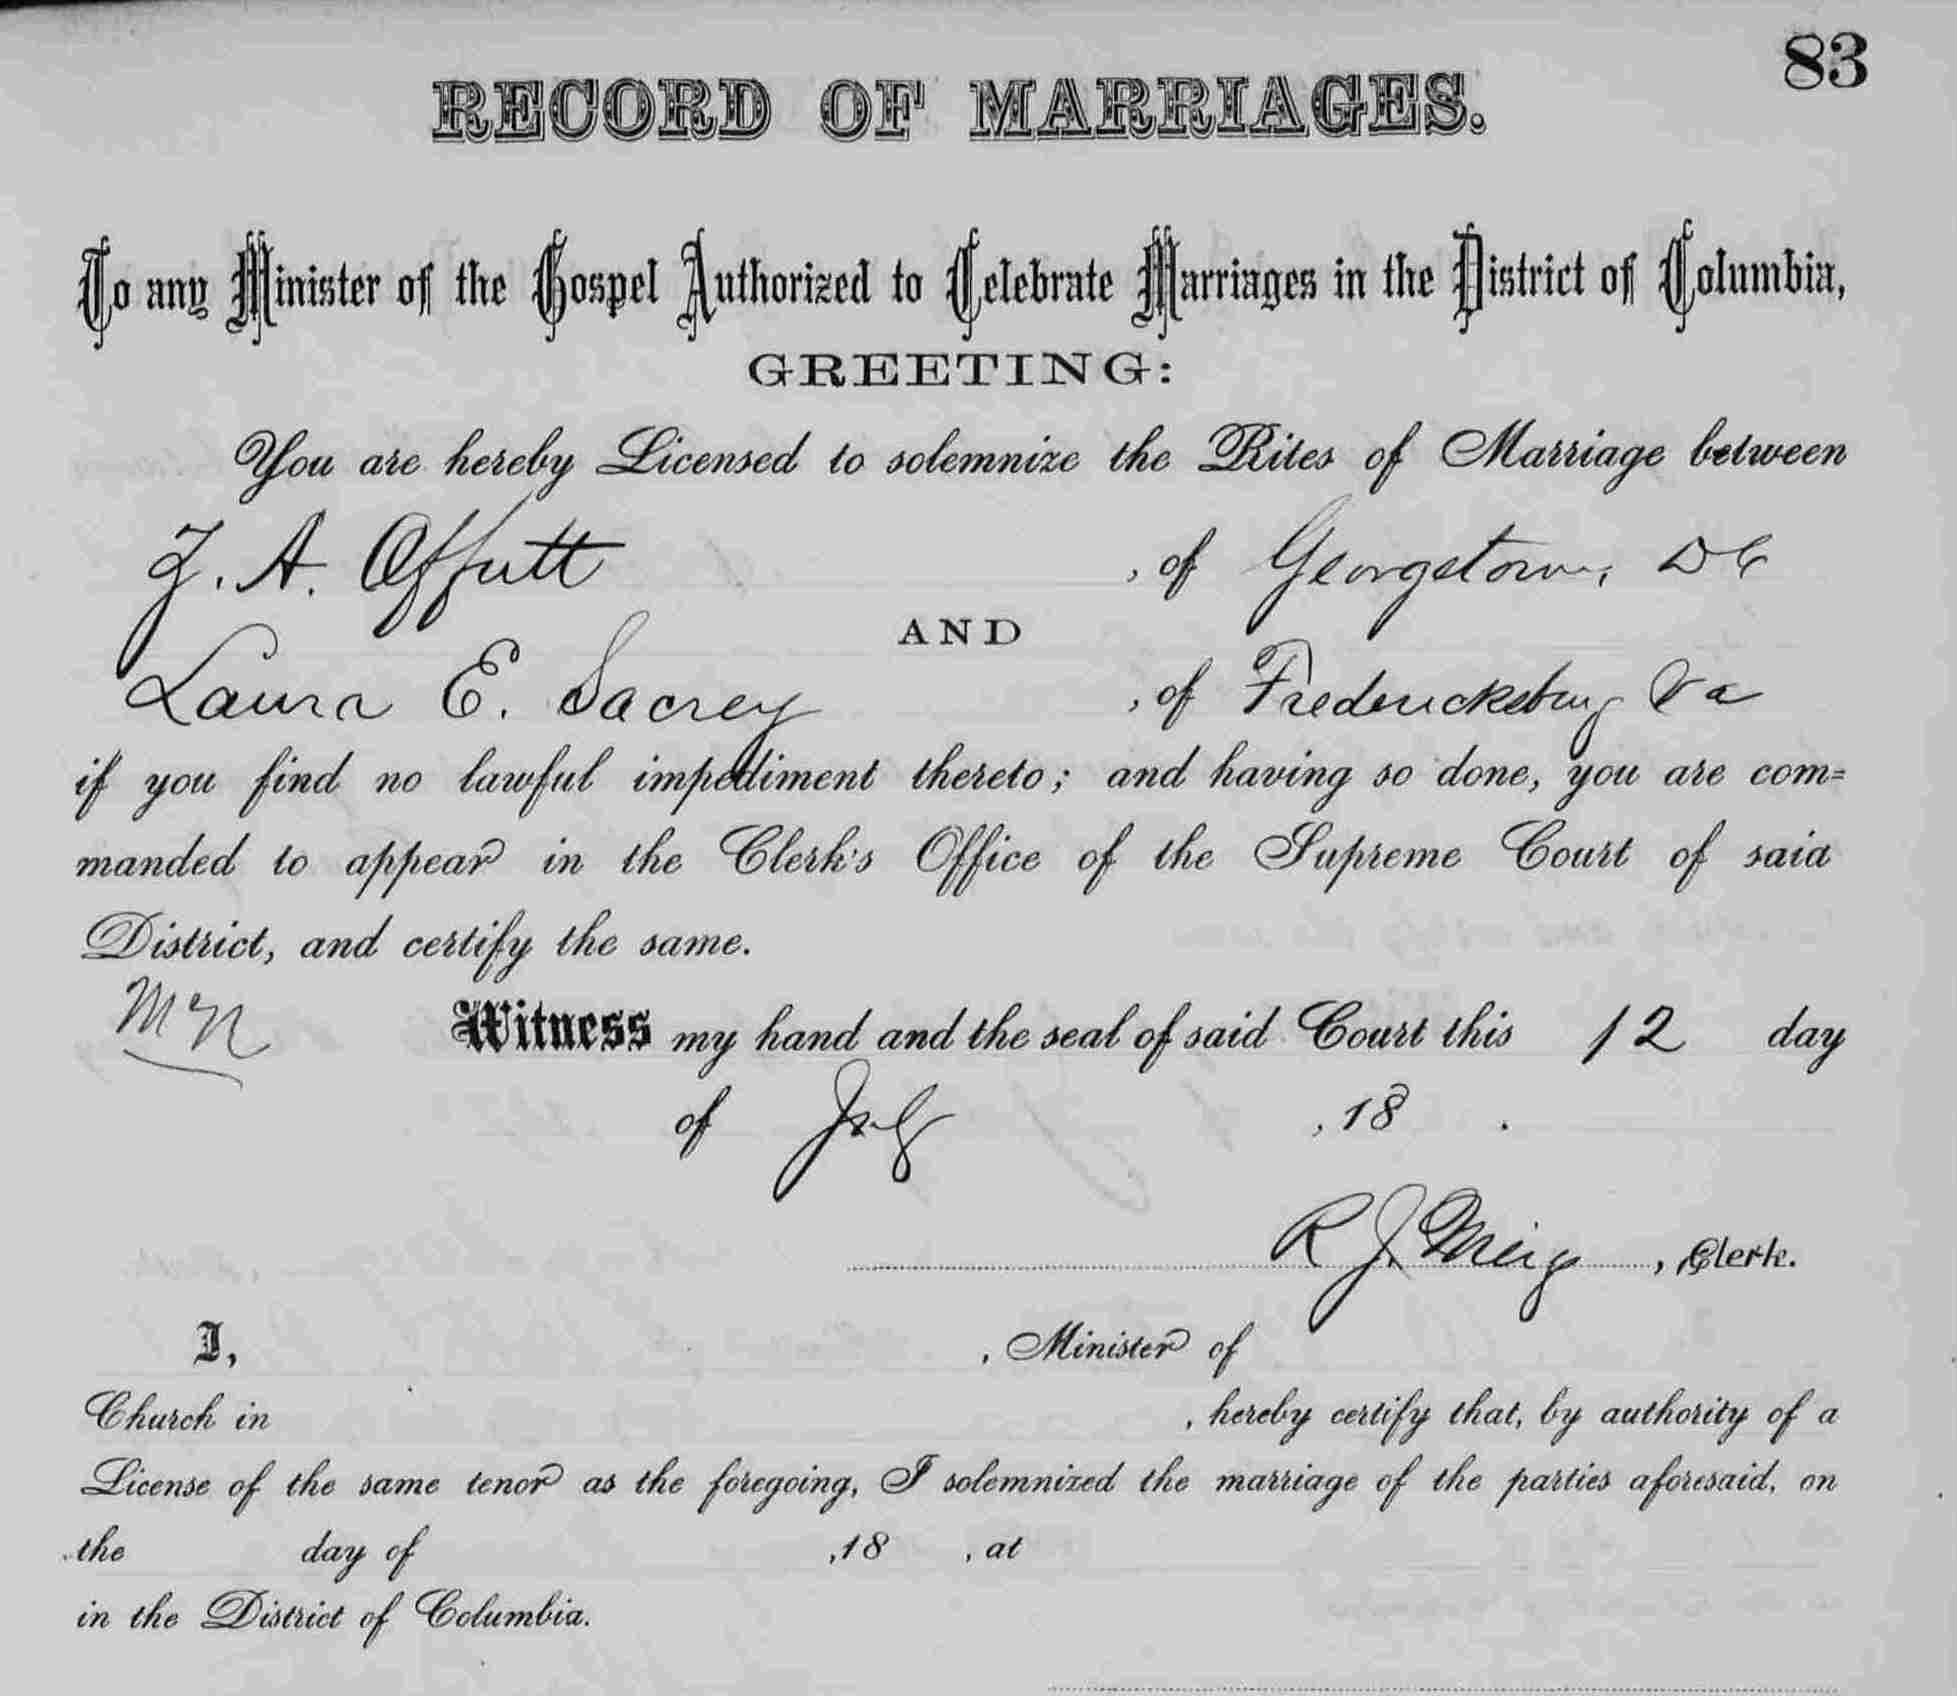 83
RECORD OF MARRIAGES.
To any Minister of the Gospel Authorized to Celebrate Marriages in the District of Columbia,
GREETING:
You are hereby Licensed to solemnize the Rites of Marriage between
Z. A. Offutt , of Georgetown, DC
AND
Laura E. Sacrey , of Fredericksburg Va
if you find no lawful impediment thereto; and having so done, you are com=
manded to appear in the Clerk's Office of the Supreme Court of said
District, and certify the same.
Witness my hand and the seal of said Court this 12 day
of July , 18 .
R J. Meigs , Clerk.
I, , Minister of
Church in , hereby certify that, by authority of a
License of the same tenor as the foregoing, I solemnized the marriage of the parties aforesaid, on
the day of , 18 , at
in the District of Columbia.